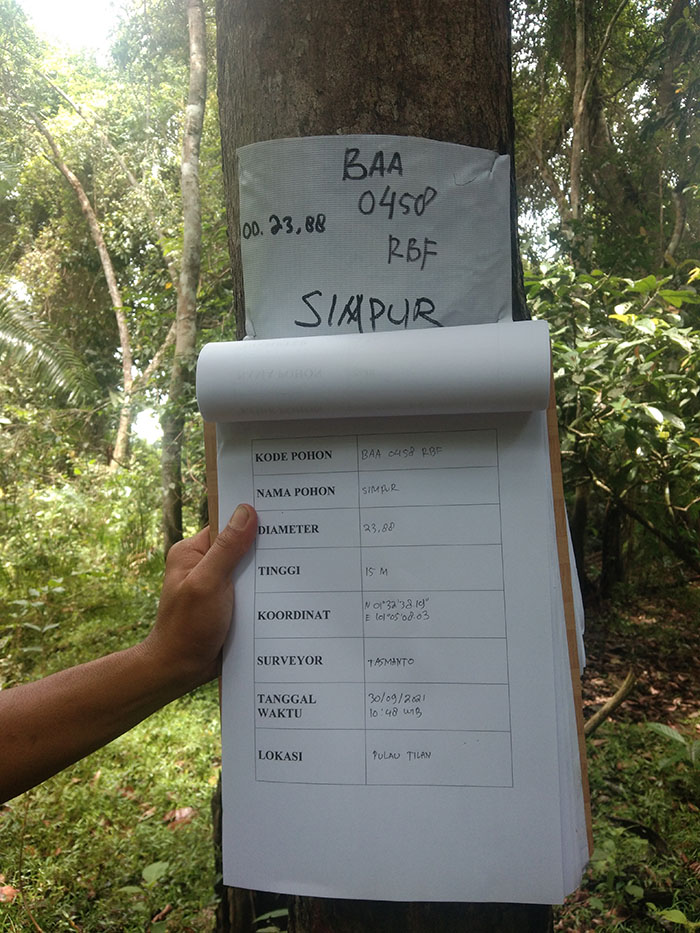 BAA
0458
OD. 23,88
RBF
SIMPUR
KODE POHON BAA 0458 RBF
NAMA POHON SIMPUR
DIAMETER 23,88
TINGGI 15 M
KOORDINAT N 01°32'38.19"
E 101°05'08.03
SURVEYOR TASMANTO
TANGGAL 30/09/2021
WAKTU 10:48 WIB
LOKASI PULAU TILAN